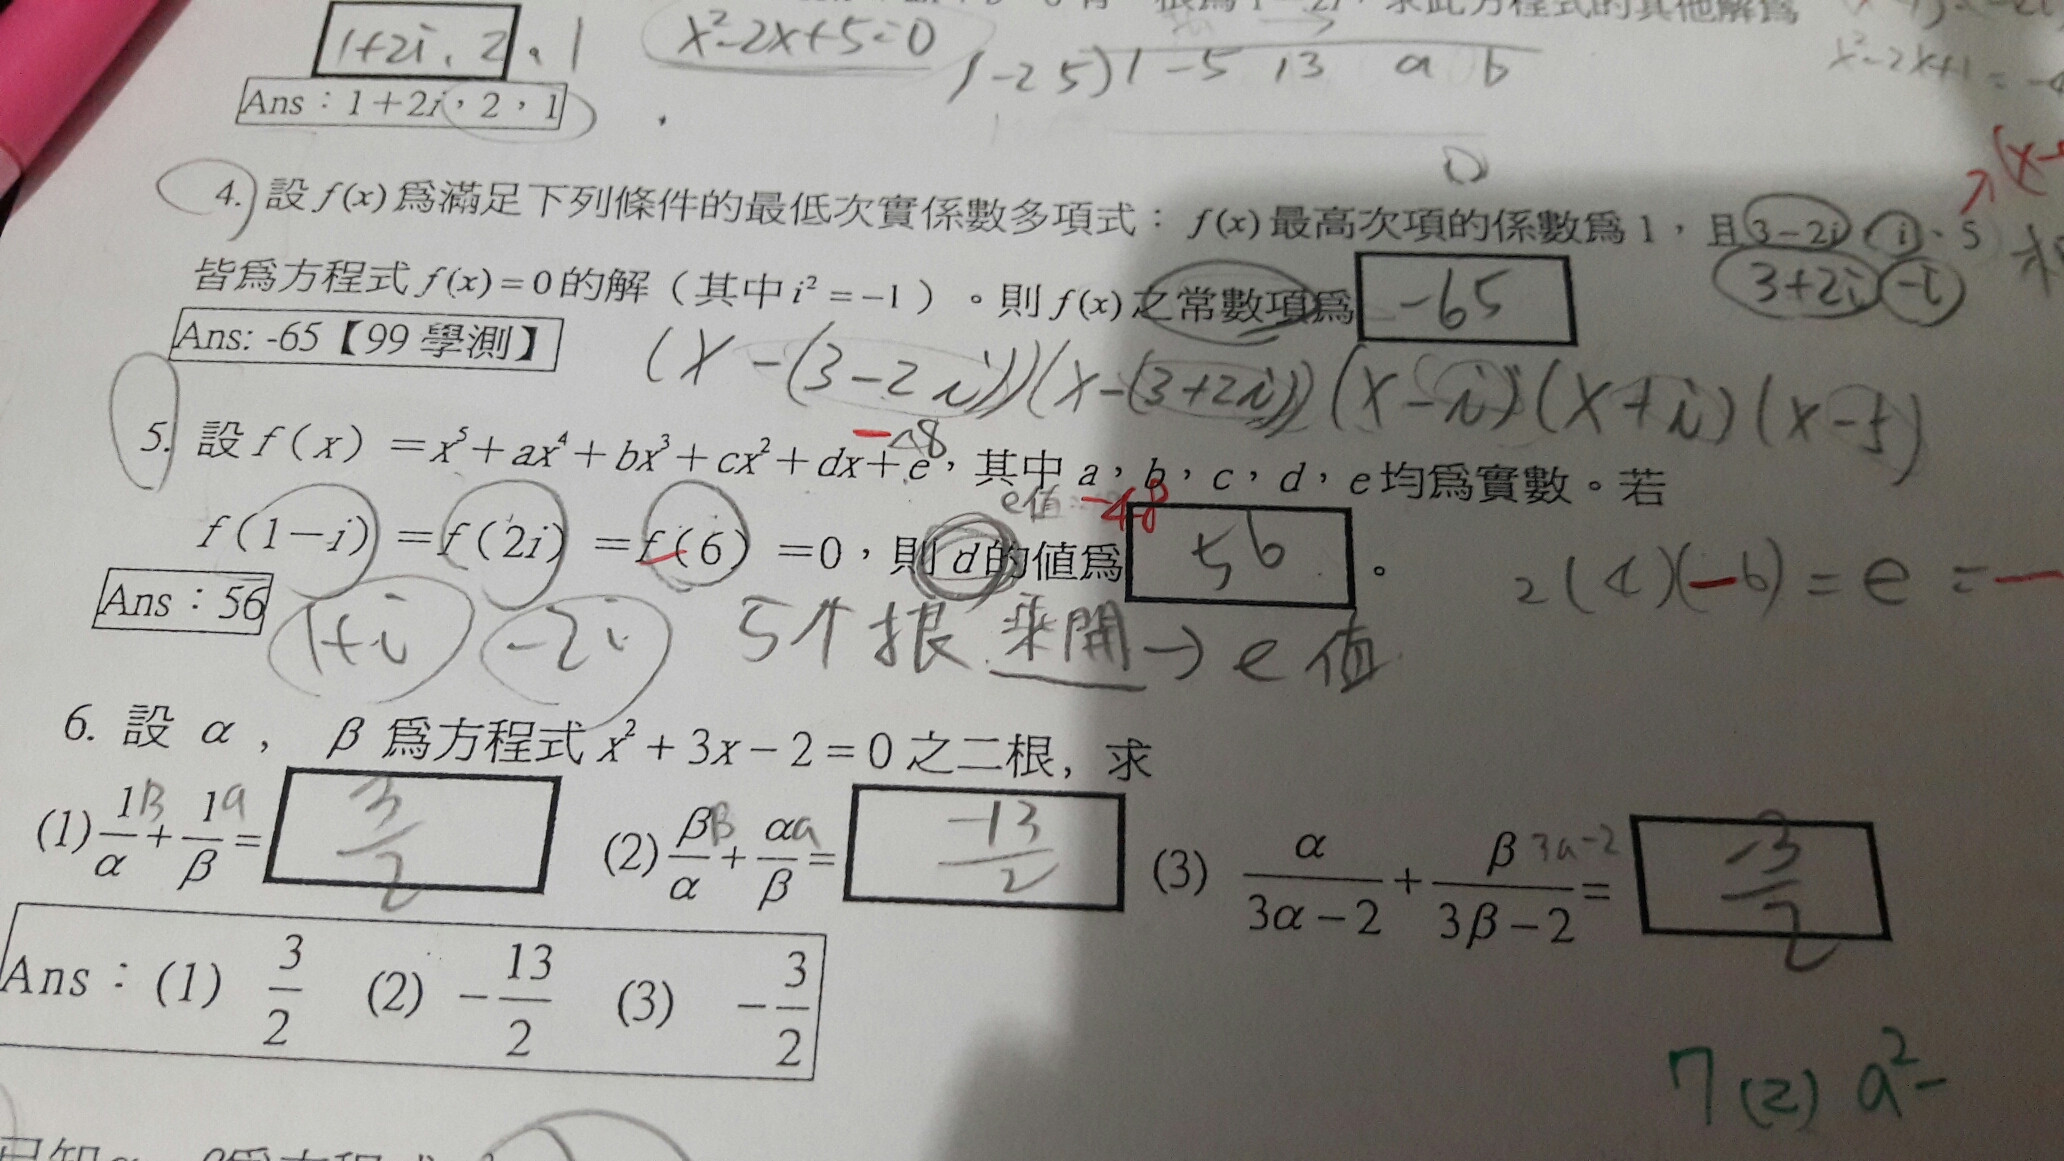 根為1-2i,求此方程式的其他解為
1+2i、2、1
x²-2x+5=0
1-25)1 -5 13 a b
x²-2x+1=-4
Ans:1+2i,2,1
0
4. 設f(x)爲滿足下列條件的最低次實係數多項式:f(x)最高次項的係數爲1,且3-2i、i、5
皆爲方程式f(x)=0的解(其中i²=-1)。則f(x)之常數項爲 -65
3+2i -i
Ans: -65【99學測】
(x-(3-2i))(x-(3+2i))(x-i)(x+i)(x-5)
-48
5. 設f(x)=x⁵+ax⁴+bx³+cx²+dx+e,其中a,b,c,d,e均爲實數。若
e值: -48
f(1-i)=f(2i)=f(6)=0,則d的值爲 56 。
2(4)(-6)=e=-
Ans:56
1+i -2i 5个根乘開→e值
6. 設 α , β 爲方程式x²+3x-2=0之二根,求
(1) 1β/α + 1a/β = 3/2 (2) ββ/α + αa/β = -13/2 (3) α/3α-2 + β 3a-2/3β-2 = -3/2
Ans:(1) 3/2 (2) -13/2 (3) -3/2
7(2) a²-